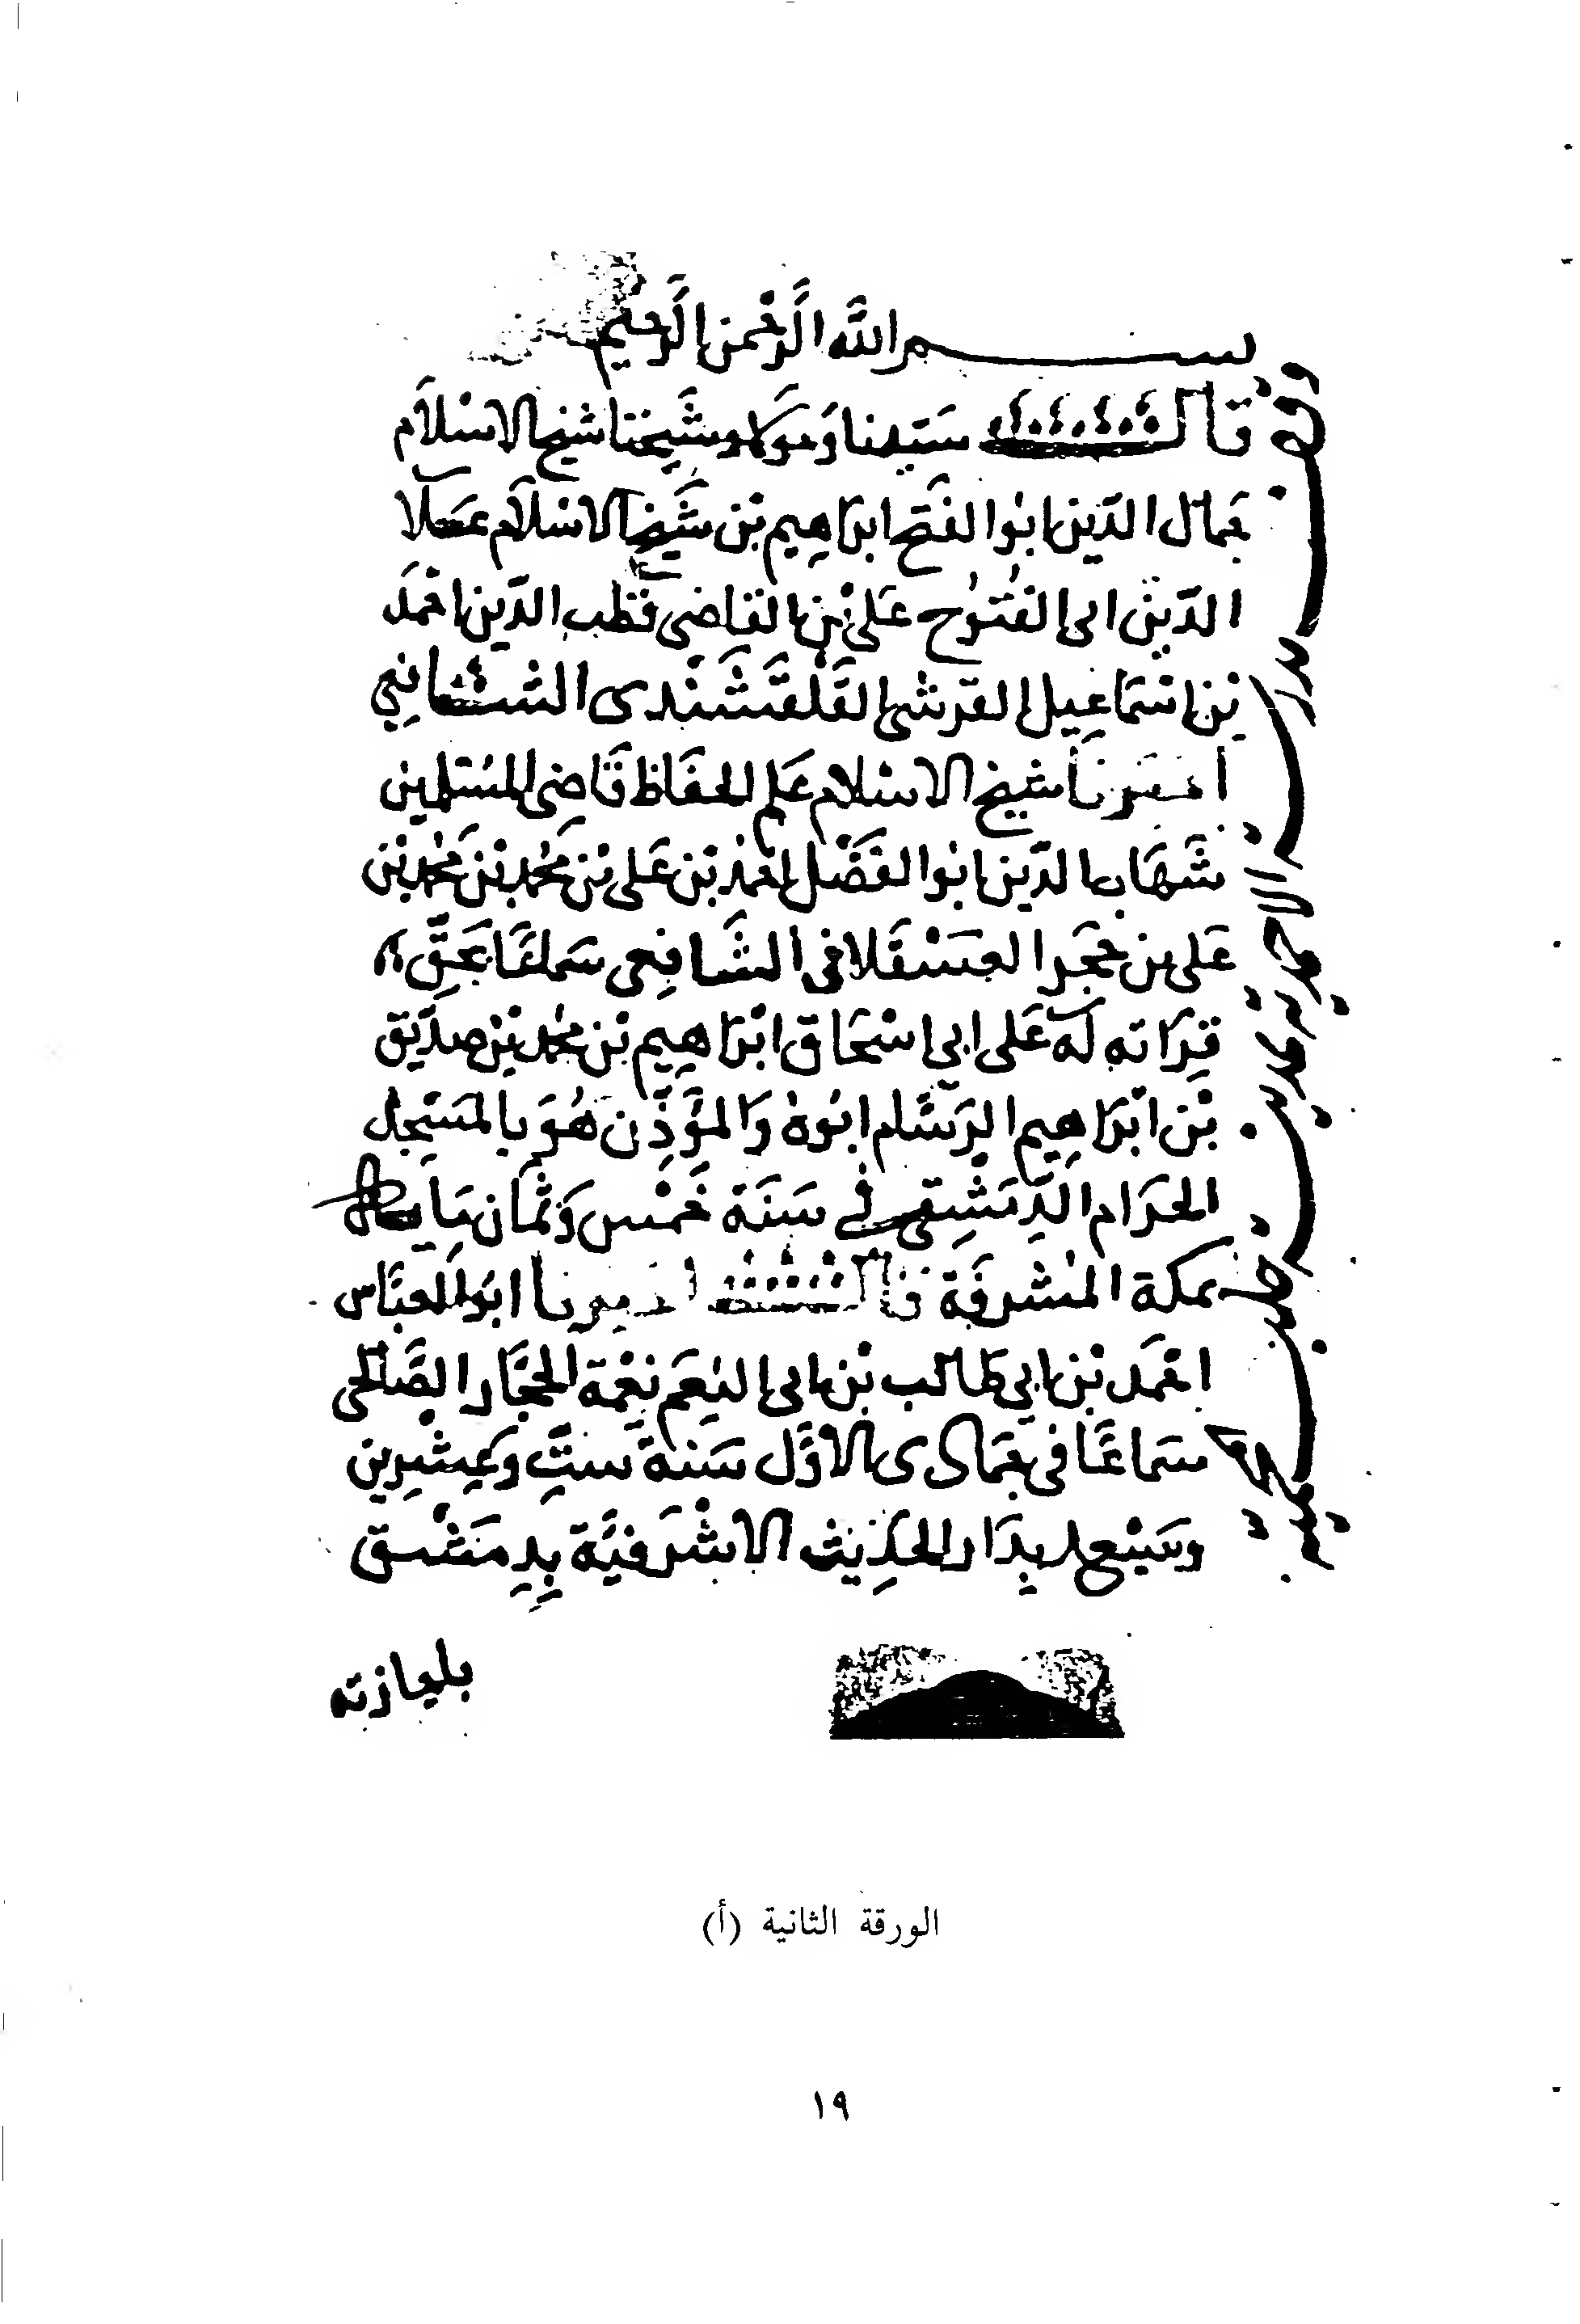 بسم الله الرحمن الرحيم
قال سيدنا ومولانا وشيخنا شيخ الاسلام
جمال الدين ابوا الفتح ابراهيم بن شيخ الاسلام علا
الدين ابى الفتوح على بن القاضى قطب الدين احمد
بن اسماعيل القرشى القلقشندى الشافعي
أخبرنا شيخ الاسلام علم الحفاظ قاضى المسلمين
شهاب الدين ابوا الفضل احمد بن على بن محمد بن محمد بن
على بن حجر العسقلانى الشافعى سماعًا بحق
قراته له على ابي اسحاق ابراهيم بن محمد بن صديق
بن ابراهيم الرسام ابوه والمؤذن هو بالمسجد
الحرام الدمشقى في سنة خمس وثمان مايه
بمكة المشرفة قال اخبرنا ابوا العباس
احمد بن ابي طالب بن ابى النعم نعمة الحجار الصالحى
سماعًا فى جمادى الاوّل سنة ستّ وعشرين
وسبع بدار الحديث الاشرفيّة بدمشق
باجازته
وقف
الورقة الثانية (أ)
١٩